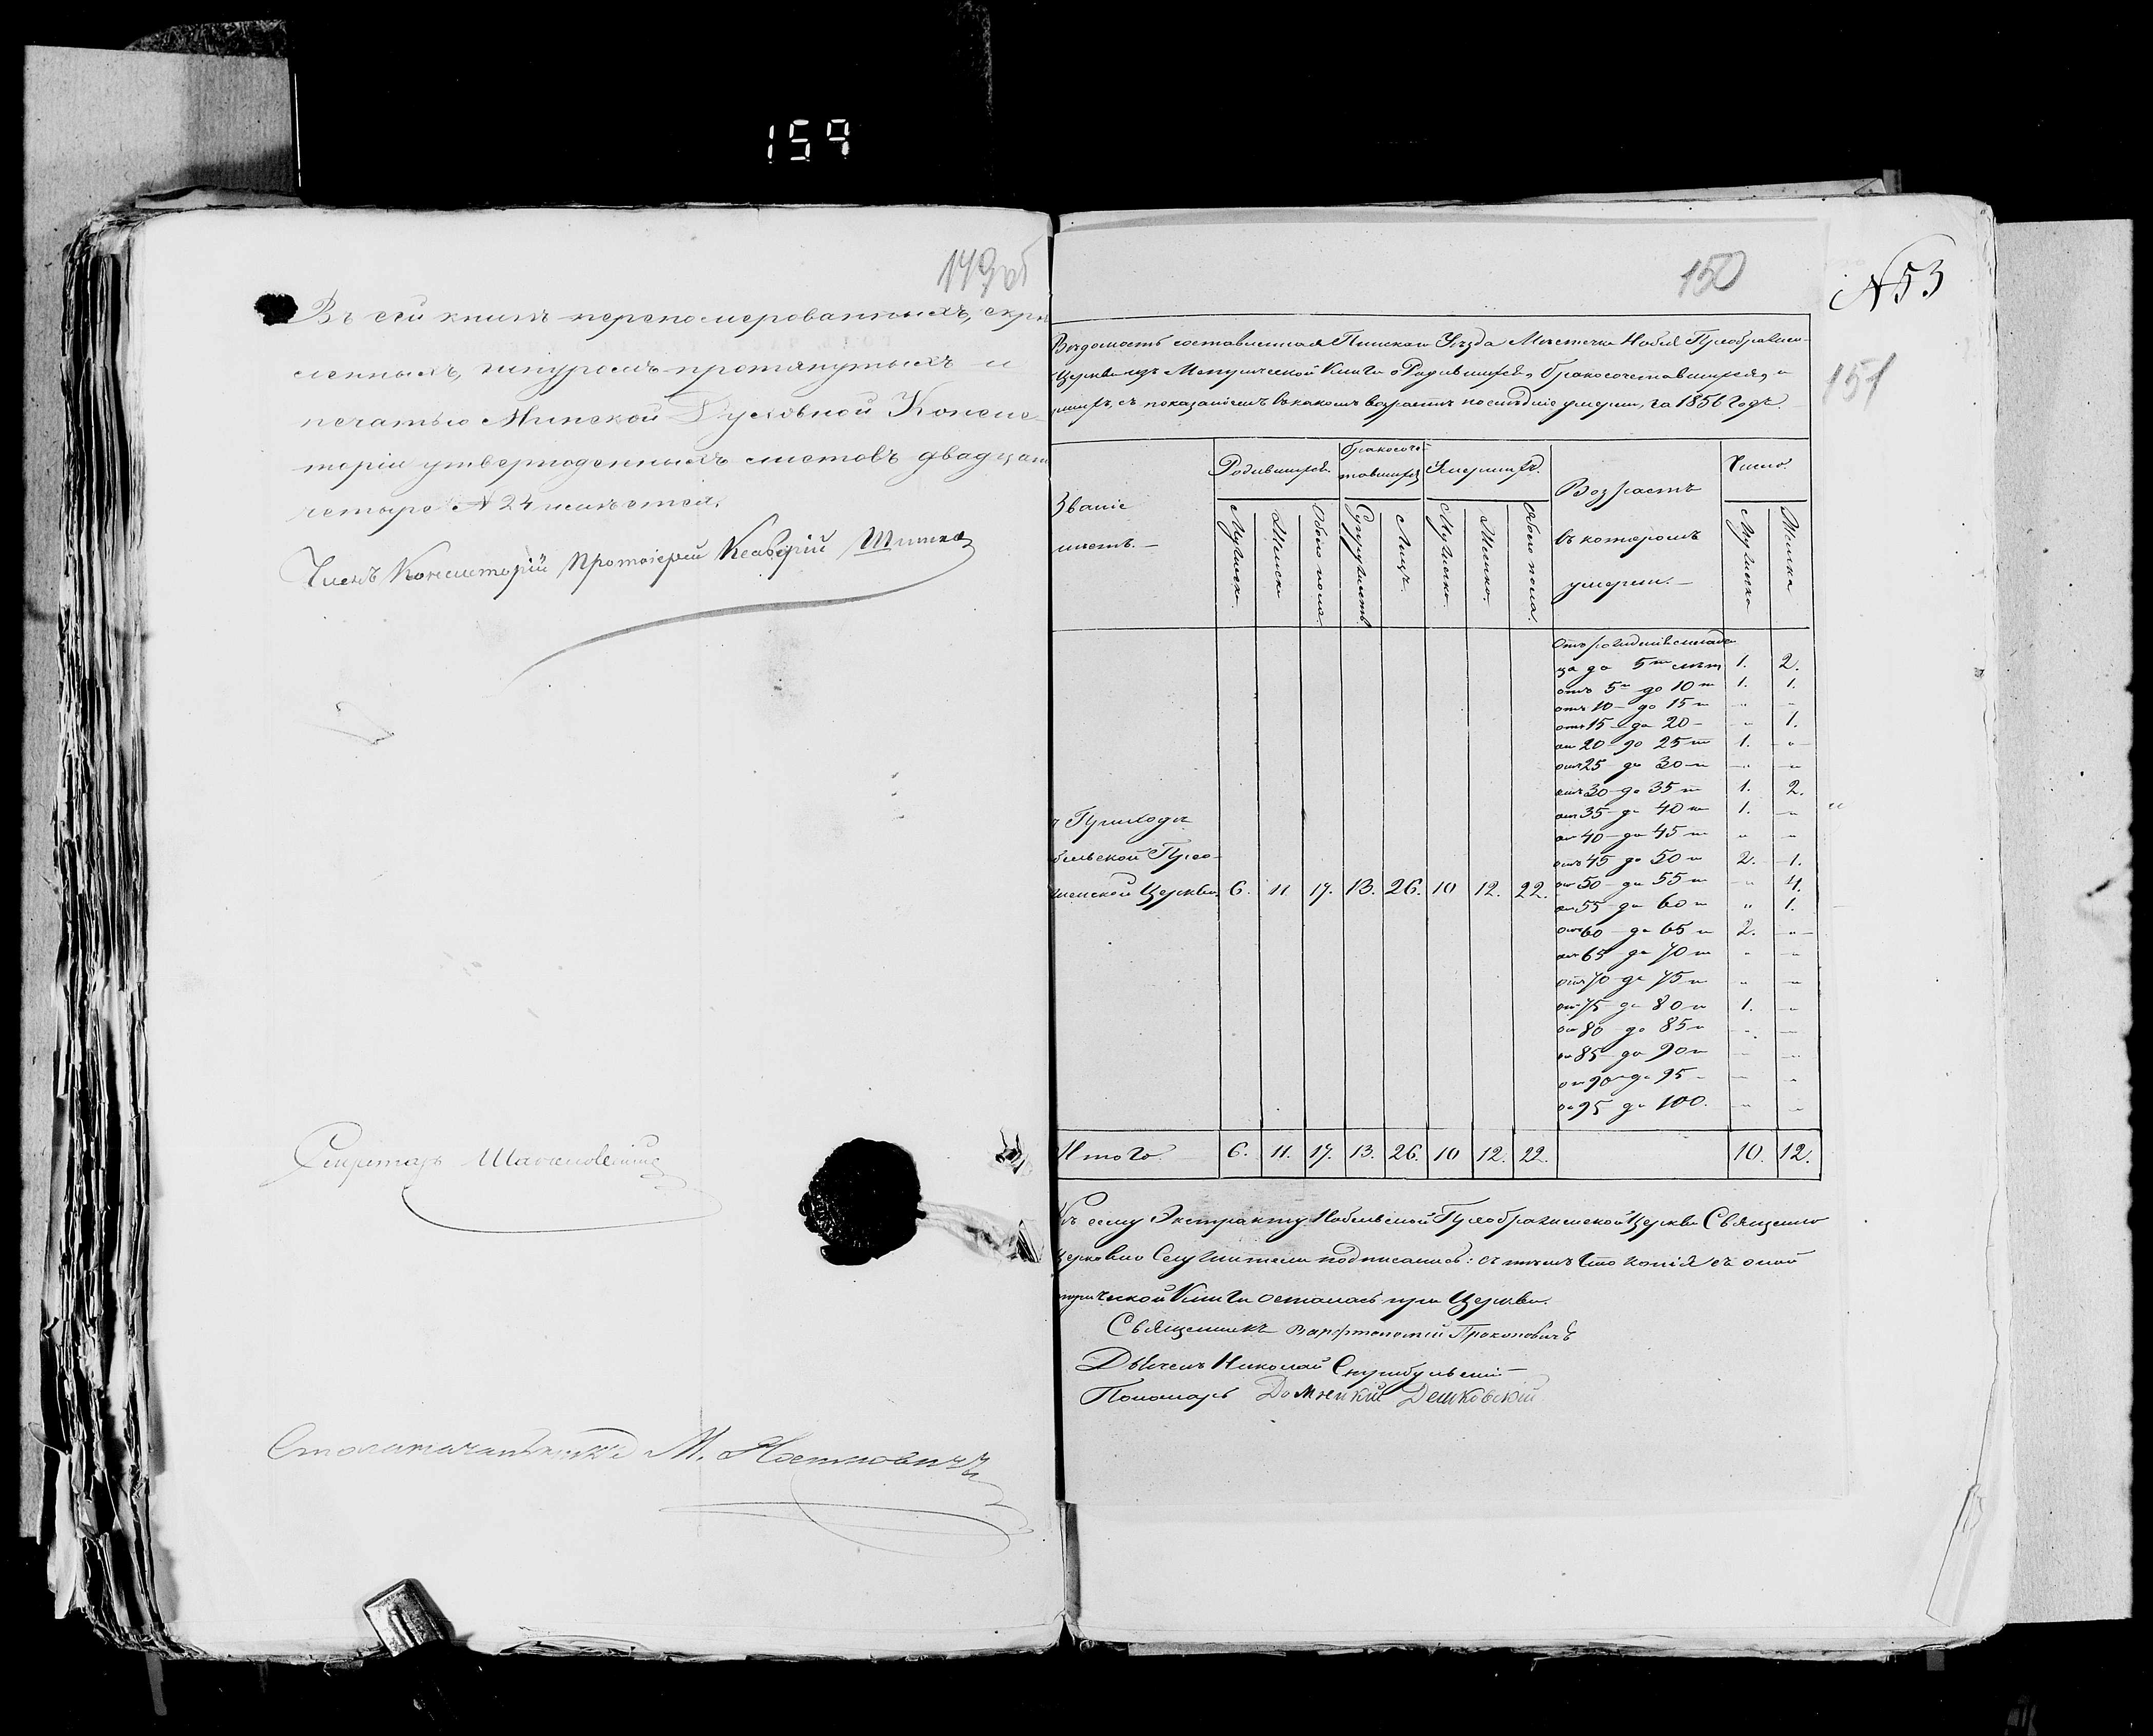 159
149об
Въ сей книгѣ перенумерованныхъ, скрѣ
пленныхъ, шнуромъ протянутыхъ и
печатью Минской Духовной Консис-
торіи утвержденныхъ листовъ двадцать
четыре № 24 имѣется.
Членъ Консисторіи Протоіерей Ксаверій
Секретарь
Столоначальникъ М.
150
N 53
151
Вѣдомость составленная Пинскаго Уѣзда Мѣстечка Нобля Преображен-
Церкви изъ Метрической Книги о Родившихся, бракосочетавшихся, и
ршихъ, съ показаніемъ въ какомъ возрастѣ послѣдніе умерли, за 1856 Годъ.
Званіе
мѣстъ.
Родившихся.
Бракосоче-
тавшихся
Умершихъ.
Возрастъ
въ которомъ
умерли.
Число.
Мужеска. Женска Обоего пола. Супружествъ Лицъ. Мужеска. Женска. Обоего пола. Мужеска Женска
Отъ рожденія младен
ца до 5ти лѣтъ 1. 2.
отъ 5ти до 10ти 1. 1.
отъ 10 до 15ти " "
отъ 15 до 20 " 1.
отъ 20 до 25ти 1. "
отъ 25 до 30ти " "
отъ 30 до 35ти 1. 2.
отъ 35 до 40ти 1. "
отъ 40 до 45ти " "
отъ 45 до 50ти 2. 1.
отъ 50 до 55ти " 4.
отъ 55 до 60ти " 1.
отъ 60 до 65ти 2. "
отъ 65 до 70ти " "
отъ 70 до 75ти " "
отъ 75 до 80ти 1. "
отъ 80 до 85ти " "
отъ 85 до 90ти " "
отъ 90 до 95 " "
отъ 95 до 100. " "
Приходѣ
бельской Прео-
женской Церкви 6. 11 17. 13. 26. 10 12. 22.
Итого 6. 11. 17. 13. 26. 10 12. 22. 10. 12.
Къ сему Экстракту Нобельской Преображенской Церкви Священно
Церковно Служители подписались: съ тѣмъ что копія съ оной
трической Книги осталась при Церкви.
Священникъ Варфоломей Прокоповичъ
Дьячекъ Николай
Пономарь Дешковскій